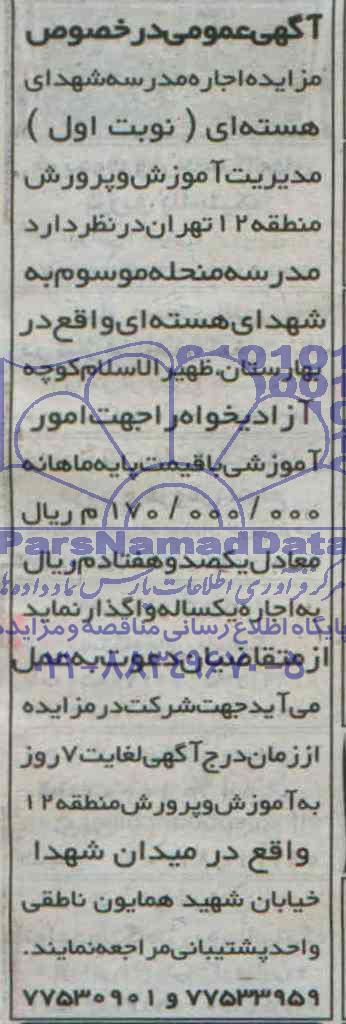 آگهی عمومی در خصوص
مزایده اجاره مدرسه شهدای
هسته‌ای ( نوبت اول )
مدیریت آموزش و پرورش
منطقه ۱۲ تهران در نظر دارد
مدرسه منحله موسوم به
شهدای هسته‌ای واقع در
بهارستان، ظهیر الاسلام کوچه
آزادیخواه را جهت امور
آموزشی با قیمت پایه ماهانه
۱۷۰/۰۰۰/۰۰۰ م ریال
ParsNamadData
معادل یکصد و هفتاد م ریال
مرکز فرآوری اطلاعات پارس نماد داده ها
به اجاره یکساله واگذار نماید
پایگاه اطلاع رسانی مناقصه و مزایده
از متقاضیان دعوت به عمل
۰۲۱-۸۸۳۴۹۶۷۰-۵
می‌آید جهت شرکت در مزایده
از زمان درج آگهی لغایت ۷ روز
به آموزش و پرورش منطقه ۱۲
واقع در میدان شهدا
خیابان شهید همایون ناطقی
واحد پشتیبانی مراجعه نمایند.
۷۷۵۳۳۹۵۹ و ۷۷۵۳۰۹۰۱